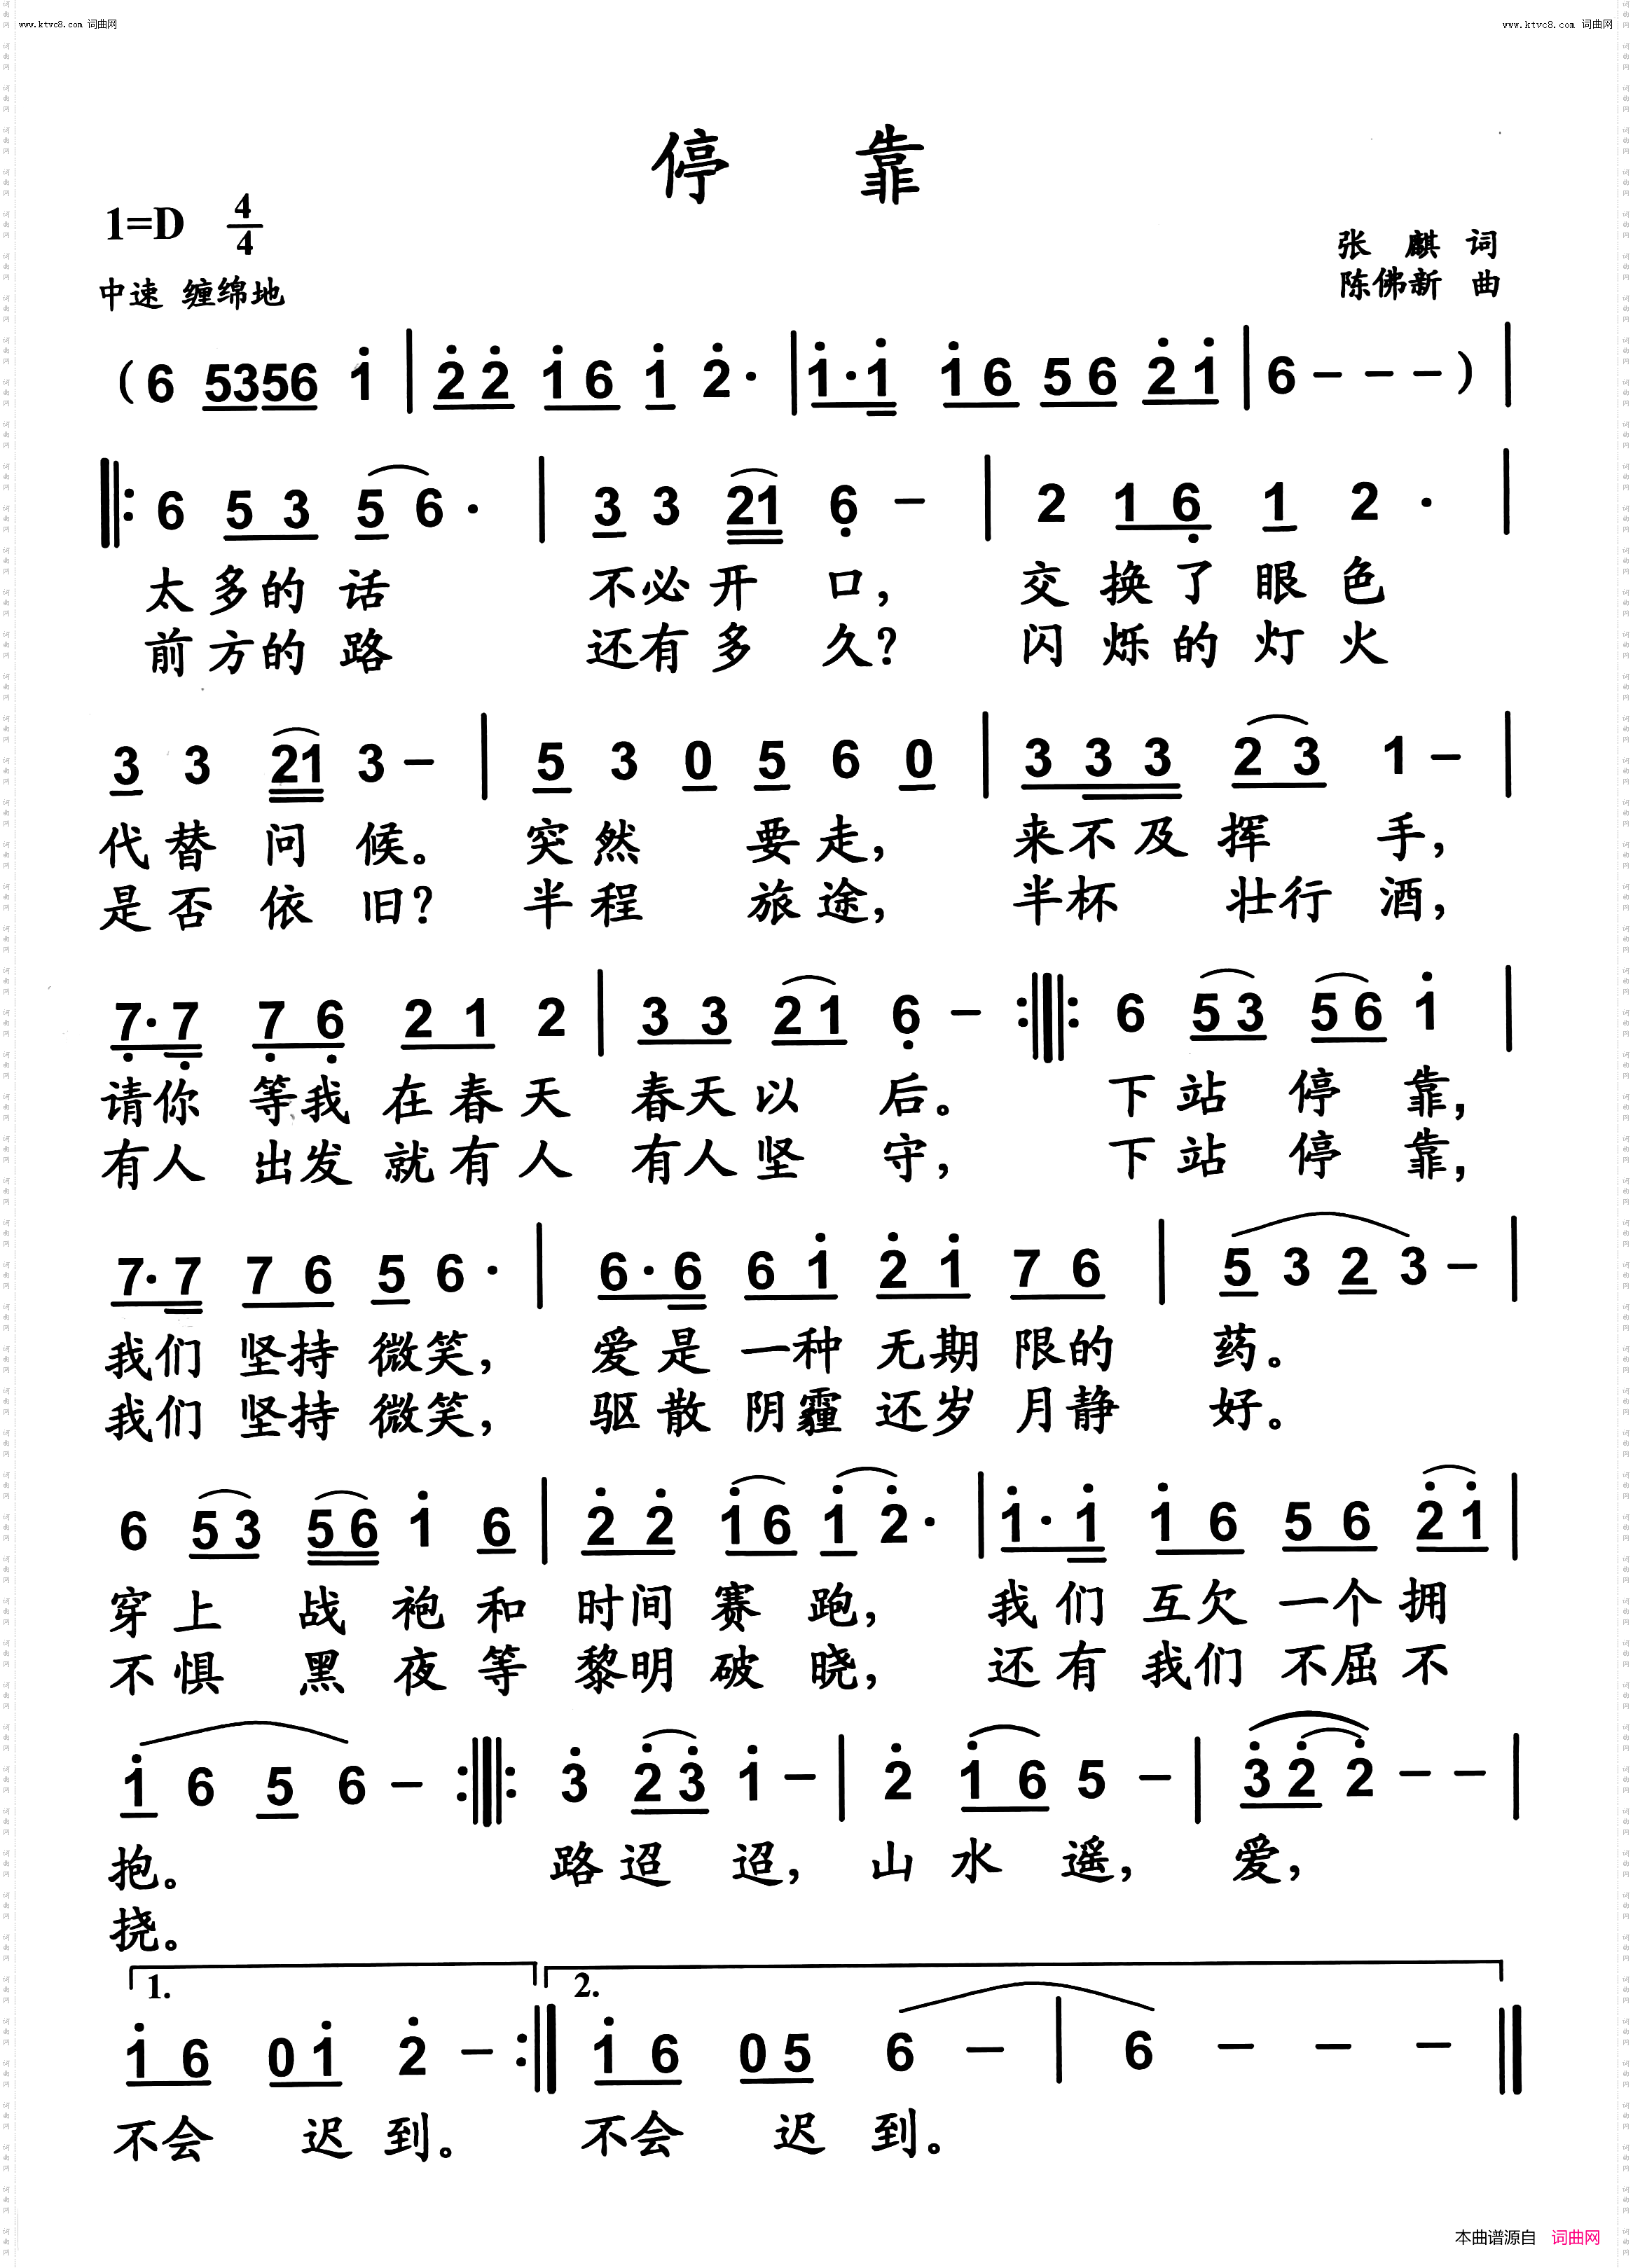 www.ktvc8.com 词曲网 www.ktvc8.com 词曲网
停 靠
1=D 4/4
张 麒 词
中速 缠绵地 陈佛新 曲
(6 5356 i | 2̇ 2̇ i 6 i 2̇· | i· i i 6 5 6 2̇ i | 6 – – –) |
‖: 6 5 3 5 6· | 3 3 21 6̣ – | 2 1 6̣ 1 2· |
太多的话 不必开口, 交换了眼色
前方的路 还有多久? 闪烁的灯火
3 3 21 3 – | 5 3 0 5 6 0 | 3 3 3 2 3 1 – |
代替问候。 突然 要走, 来不及挥手,
是否依旧? 半程 旅途, 半杯 壮行酒,
7̣· 7̣ 7̣ 6̣ 2 1 2 | 3 3 2 1 6̣ – :‖: 6 5 3 5 6 i |
请你等我在春天 春天以后。 下站停靠,
有人出发就有人 有人坚守, 下站停靠,
7· 7 7 6 5 6· | 6· 6 6 i 2̇ i 7 6 | 5 3 2 3 – |
我们坚持微笑, 爱是一种无期限的 药。
我们坚持微笑, 驱散阴霾还岁月静 好。
6 5 3 5 6 i 6 | 2̇ 2̇ i 6 i 2̇· | i· i i 6 5 6 2̇ i |
穿上战袍和 时间赛跑, 我们互欠一个拥
不惧黑夜等 黎明破晓, 还有我们不屈不
i 6 5 6 – :‖: 3̇ 2̇ 3̇ i – | 2̇ i 6 5 – | 3̇ 2̇ 2̇ – – |
抱。 路迢迢, 山水遥, 爱,
挠。
1. 2.
i 6 0 i 2̇ – :‖ i 6 0 5 6 – | 6 – – – ‖
不会 迟到。 不会 迟到。
本曲谱源自 词曲网